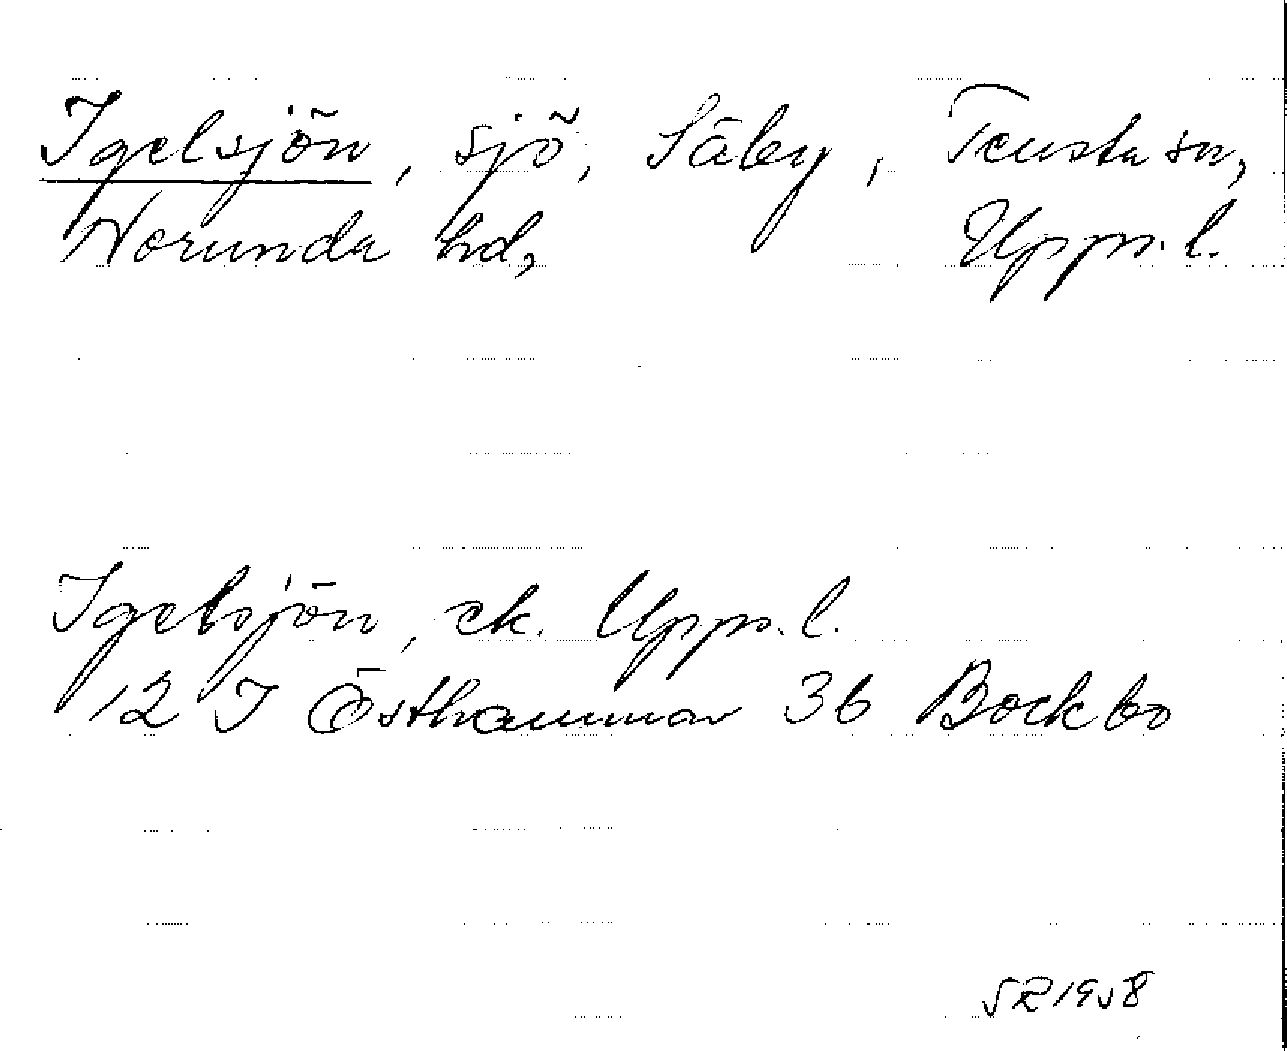 Igelsjön, sjö, Säby, Tensta sn,
Norunda hd, Upps. l.
Igelsjön, ek. Upps. l.
12 I Östhammar 36 Bockbo
SR 1958